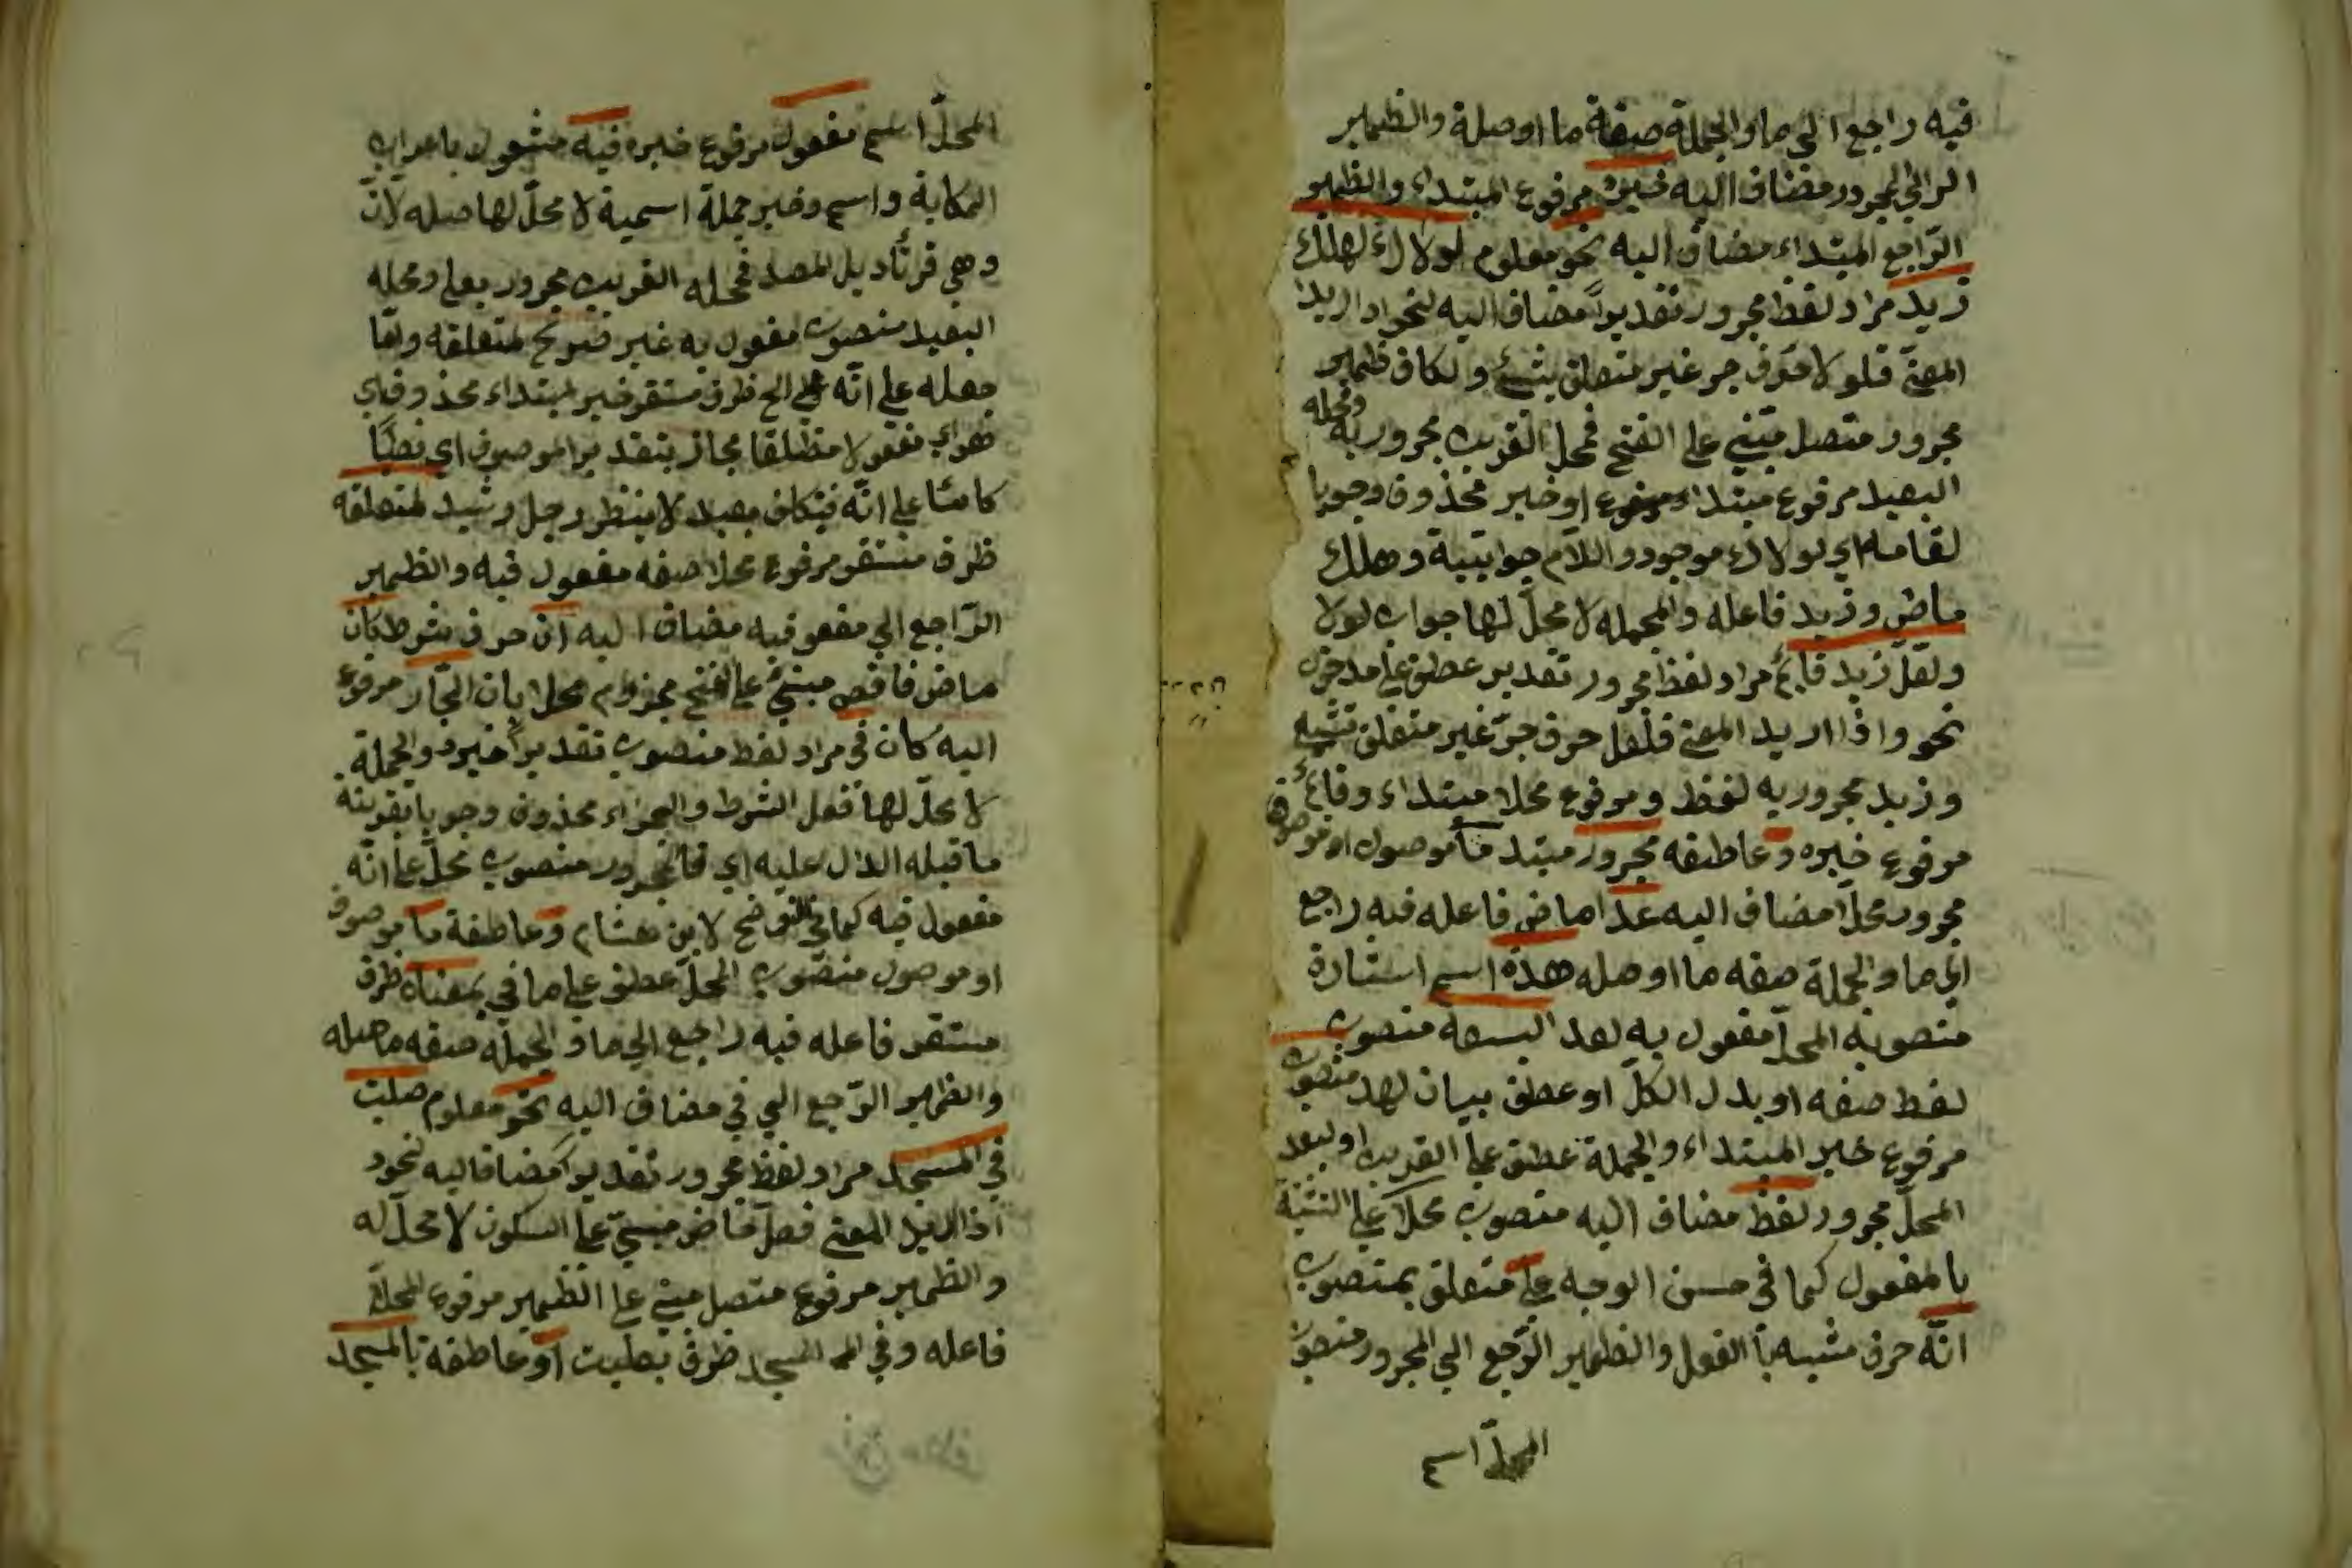 فيه راجع الي ما والجملة صفة ما اوصلة والظمير
الرالي المجرور مضاف اليه مرفوع المبتداء والظمير
الرّاجع المبتداء مضاف اليه نحو معلوم لولاك لهلك
زيد مراد لفظ مجرور تقديراً مضاف اليه لنحو اد اريد
المعنيّ فلولا حرف جر غير متعلق بشئ والكاف ظمير
مجرور متصل مبني على الفتح فمحل القريب مجرور به ومحله
البعيد مرفوع مبتداء او خبر محذوف وجوبا
لقامه اي لولاك موجود واللام جوابتية وهلك
ماض وزيد فاعله والجمله لا محلّ لها جواب لولا
ولعلّ زيد قائم مراد لفظ مجرور تقدير عطف علي مدخول
نحو واذا اريد المعني فلعل حرف جرّ غير متعلق بشيئ
وزيد مجرور به لفظ ومرفوع محلا مبتداء وقائم
مرفوع خبره وعاطفه مجرور مبتد ما موصول او موصوف
مجرور محلّا مضاف اليه عدا ماض فاعله فيه راجع
الي ما والجملة صفه ما اوصله هذه اسم استارة
منصوبة المحلّ مفعول به لعد السبعه منصوب
لفظ صفه او بدل الكلّ او عطف بيان لهد منصوب
مرفوع خبر المبتداء والجملة عطف علي القريب او لبعد
المحلّ مجرور لفظ مضاف اليه منصوب محلّا علي التشبة
بالمفعول كما في حسن الوجه علي متعلق بمنصوب
انّه حرف مشبه بالفعل والظمير الرّجع الي المجرور منصوب
المحلّ اسم
المحلّ اسم مفعول مرفوع خبره فيه مشغول باعراب
الحكاية واسم وخبر جملة اسمية لا محلّ لها صله لانّ
وهي في تأديل المصد فمحله القريب مجرور بعلي ومحله
البعيد منصوب مفعول به غير صريح لمتعلقه وامّا
جعله علي انّه علي الخ ظرف مستقر خبر لمبتداء محذوف اي
هو اي مفعولا مطلقا مجاز بتقدير الموصوف اي نصبًا
كائنا علي انّه فتكلف بعيد لا ينظر رجل رشيد لمتعلقه
ظرف مستقر مرفوع محلا صفه مفعول فيه والظمير
الرّاجع الي مفعو فيه مضاف اليه ان حرف شرط كان
ماض ناقص مبنيّ علي الفتح مجزوم محلا بان الجّار مرفوع
اليه كان في مراد لفظ منصوب تقديراً خبره والجملة
لا محلّ لها فعل الشرط والجزاء محذوف وجوبا بقرينه
ما قبله الدال عليه اي فالمجرور منصوب محلّ علي انّه
مفعول فيه كما في التوضح لابن هشام وعاطفة ما موصوف
او موصول منصّوب المحلّ عطف علي ما في بمعناه ظرف
مستقر فاعله فيه راجع الي ما و الجملة صفه ما صله
والظمير الرّجع الي في مضاف اليه نحو معلوم صليت
في المسجد مراد لفظ مجرور تقديراً مضاف اليه لنحو د
اذا اريد المعني فصلّ ماض مبنيّ علي السكون لا محلّ له
والظمير مرفوع متصل مبني علي الظمير مرفوع المحلّ
فاعله وفي المـ المسجد ظرف بصليت او عاطفة بالمسجد